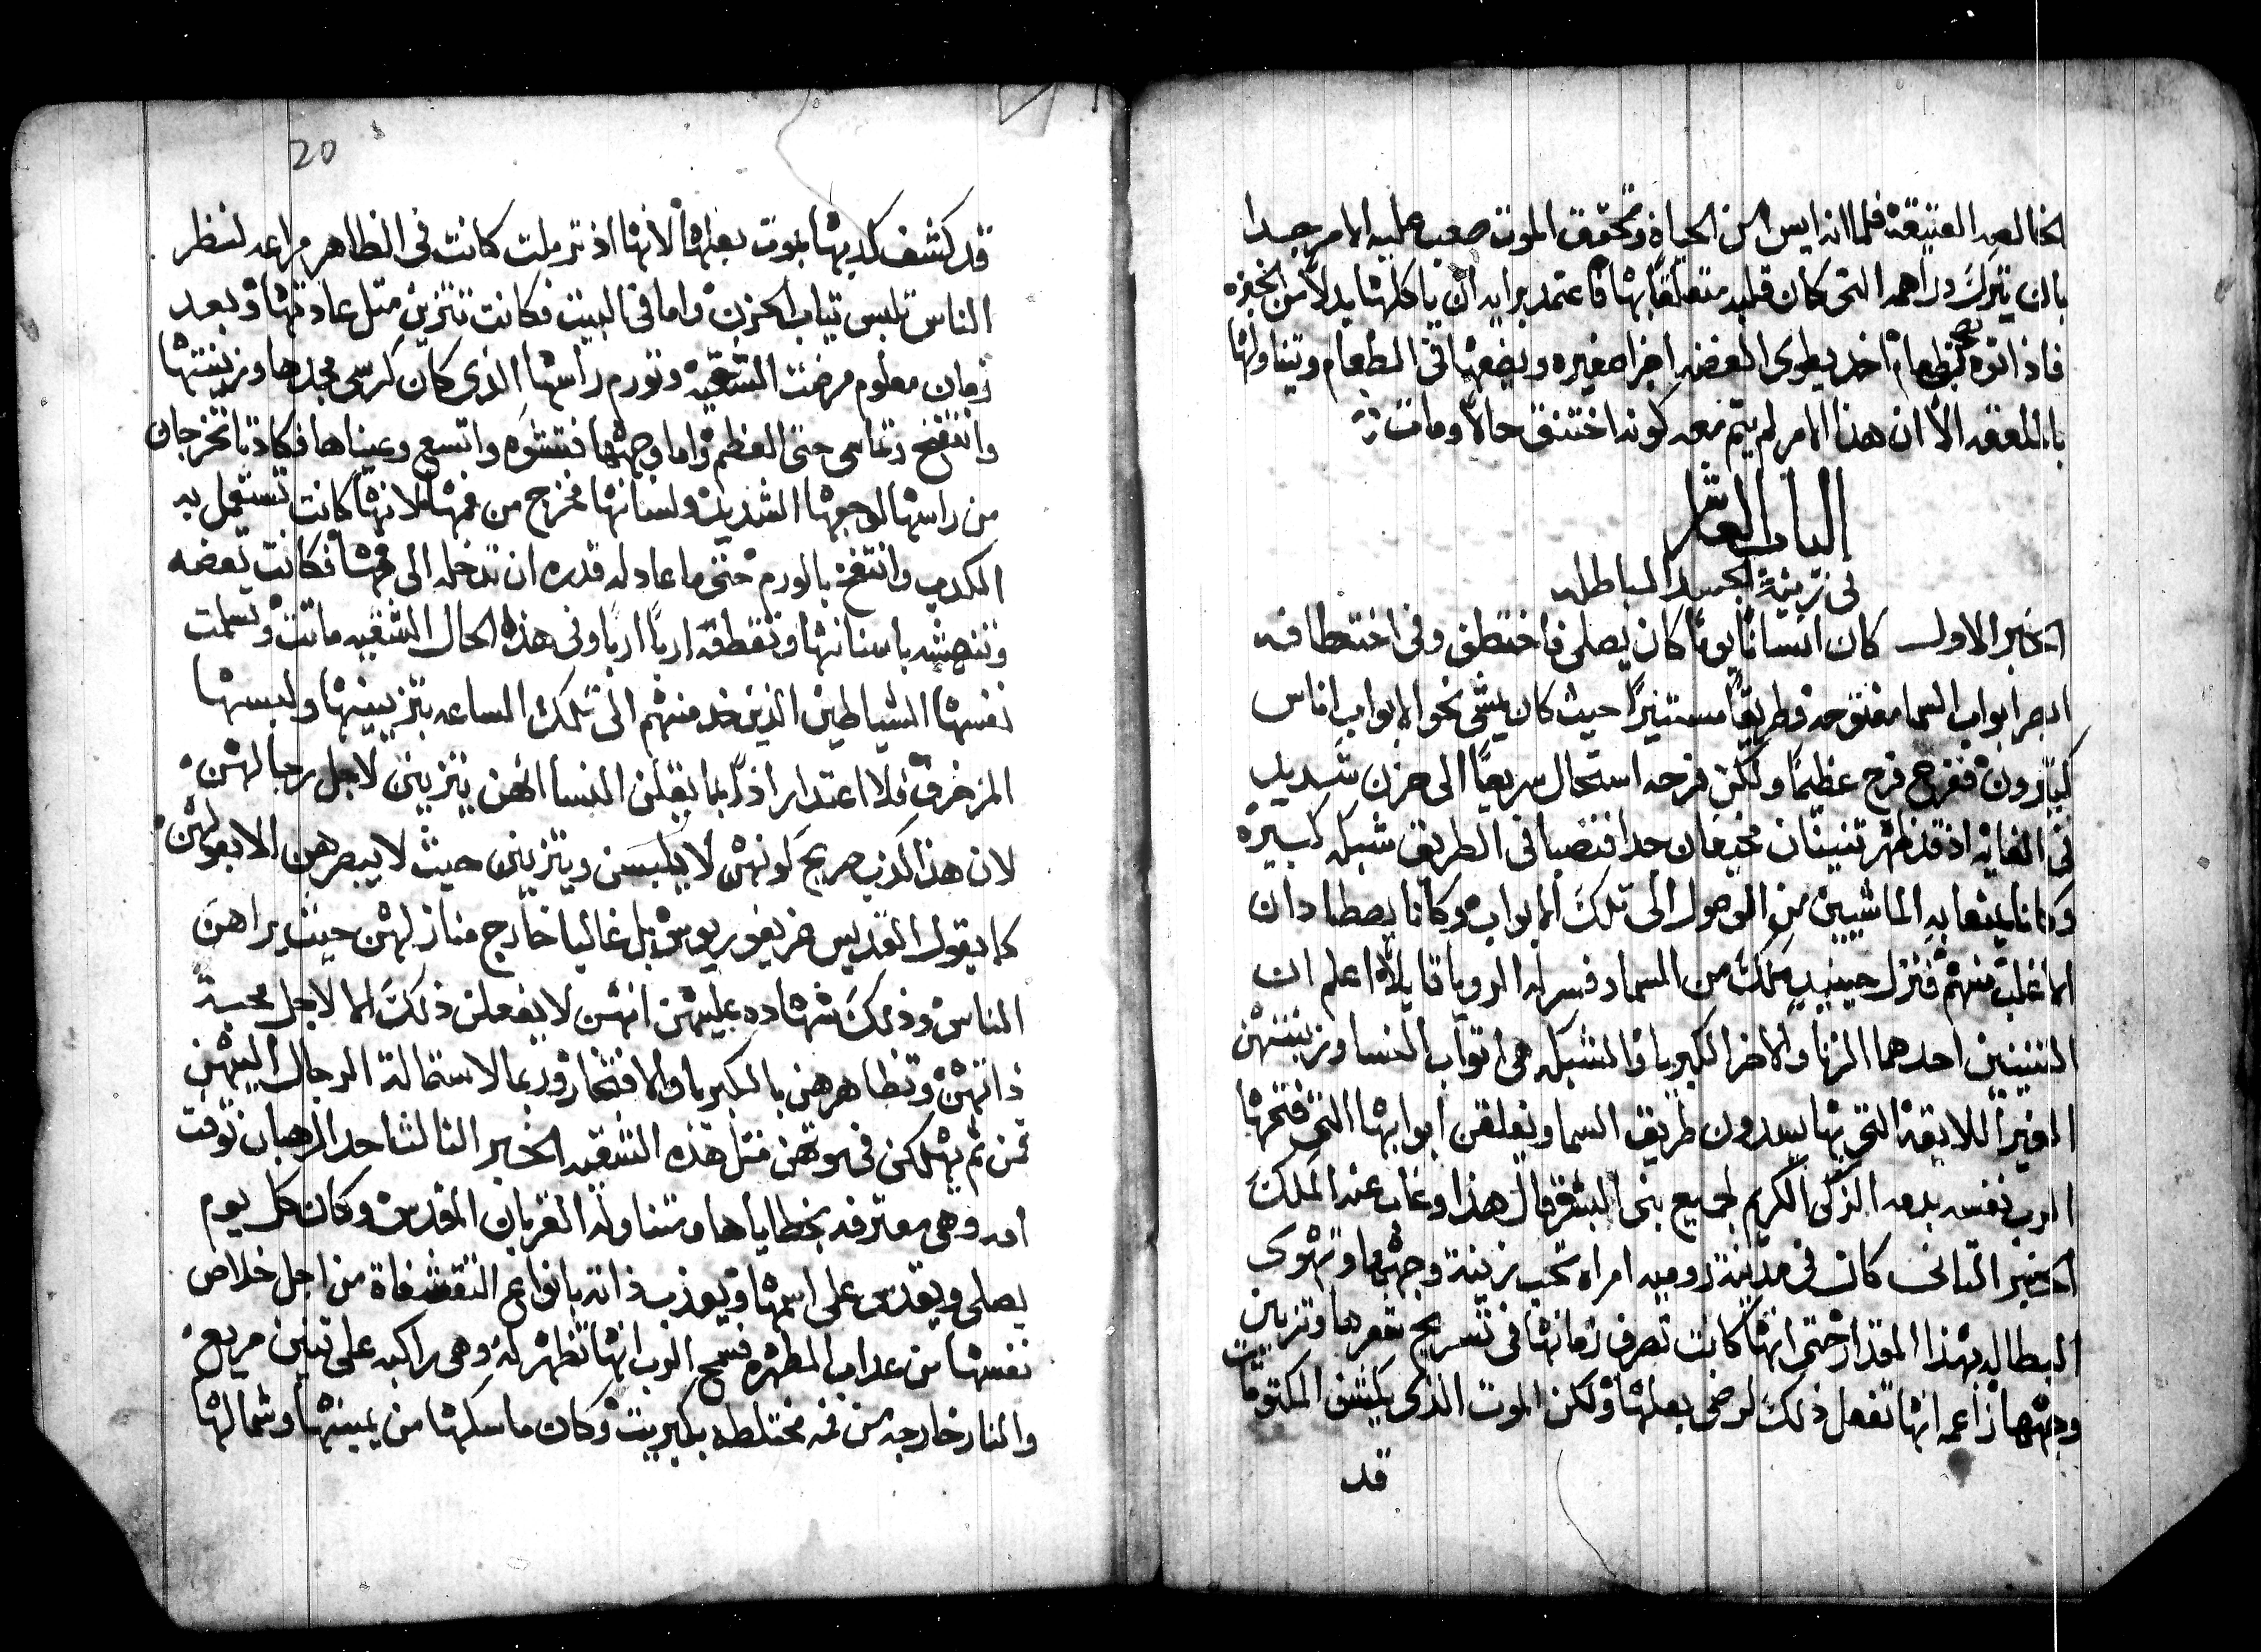 الخالعه العتيقة فلما انه ايس من الحياة وتحقق الموت صعب عليه الامر جدا
بان يترك دراهمه التى كان قلبه متعلقًا بها فاعتمد برايه ان ياكلها بدلًا من الخبزه
فاذ اتوه بطعام اخد يطوى الفضه اجزا صغيره ويضعها فى الطعام ويتناولها
بالملعقه الا ان هذا الامر لم يتم معه كونه اختنق حالاً ومات
الباب العاشر
فى زينة الجسد الباطله
الخبر الاول كان انسانًا يومًا كان يصلى فاختطف وفى اختطافه
ابصر ابواب السما مفتوحه وطريقًا مستنيرًا حيث كان يمشى نحو الابواب اناس
كتيرون ففرح فرح عظيمًا ولكن فرحه استحال سريعًا الى حزن شديد
فى الغايه اذ قد ظهر تنينان مخيفان جدا فنصبا فى الطريق شبكه كبيره
وكانا يمنعا به الماشيين من الوصول الى تلك الابواب وكانا يصطادان
الاغلب منهم فنزل حينيدٍ ملاك من السماء وفسر له الرويا قايلاً اعلم ان
التنينين احدهما الزنا والاخر الكبريا والشبكه هى اتواب النسا وزينتهن
الغير اللايقة التى بها يسدون طريق السما ويغلقن ابوابها التى فتحها
الرب نفسه بدمه الزكى الكريم لجميع بنى البشر قال هذا وغاب عنه الملاك
الخبر التانى كان فى مدينة روميه امراه تحب زينة وجهها وتهوى
البطاله بهذا المقدار حتى انها كانت تصرف زمانها فى تسريح شعرها وتزيين
وجهها زاعمه انها تفعل ذلك لرضى بعلها ولكن الموت الذى يكشف المكتومات
قد
20
قد كشف كدبها بموت بعلها لانها اذ ترملت كانت فى الظاهر مراعه لنظر
الناس تلبس تياب الحزن واما فى البيت فكانت تتزين متل عادتها وبعد
زمان معلوم مرضت الشقيه وتورم راسها الذى كان كرسى مجدها وزينتها
وانتفخ وتماسى حتى العظم واما وجهها فتشوه واتسع وعيناها فكادتا تخرجان
من راسها لوجعها الشديد ولسانها فخرج من فمها لانها كانت تستعمل به
الكدب وانتفخ بالورم حتى ما عاد له قدره ان تدخله الى فمها فكانت تعضه
وتنهشه باسنانها وتقطعه اربًا اربًا وفى هذه الحال الشقيه ماتت وتسلمت
نفسها الشياطين الذين خدمتهم الى تلك الساعه بتزيينها ولبسها
المزخرف فلا اعتدار اذًا بما يقلن النسا انهن يتزينن لاجل رجالهن
لان هذا كدب صريح كونهن لا يلبسن ويتزينن حيث لا يبصرهن الا بعولهن
كما يقول القديس غريغوريوس بل غالبا خارج منازلهن حيث يراهن
الناس وذلك شهاده عليهن انهن لا يفعلن ذلك الا لاجل محبة
ذاتهن وتظاهرهن بالكبريا والافتخار وربما لاستمالة الرجال اليهن
فمن تم يهلكن فى موتهن متل هذه الشقيه الخبر التالت احد الرهبان توفت
امه وهى معترفه بخطاياها ومتناوله القربان المقدس وكان كل يوم
يصلى ويقدس على اسمها ويعذب ذاته بانواع التقشفاة من اجل خلاص
نفسها من عداب المطهره فسمح الرب انها تظهر له وهى راكبه على تنين مريع
والنار خارجه من فمه مختلطه بكبريت وكان ماسكها من يمينها وشمالها